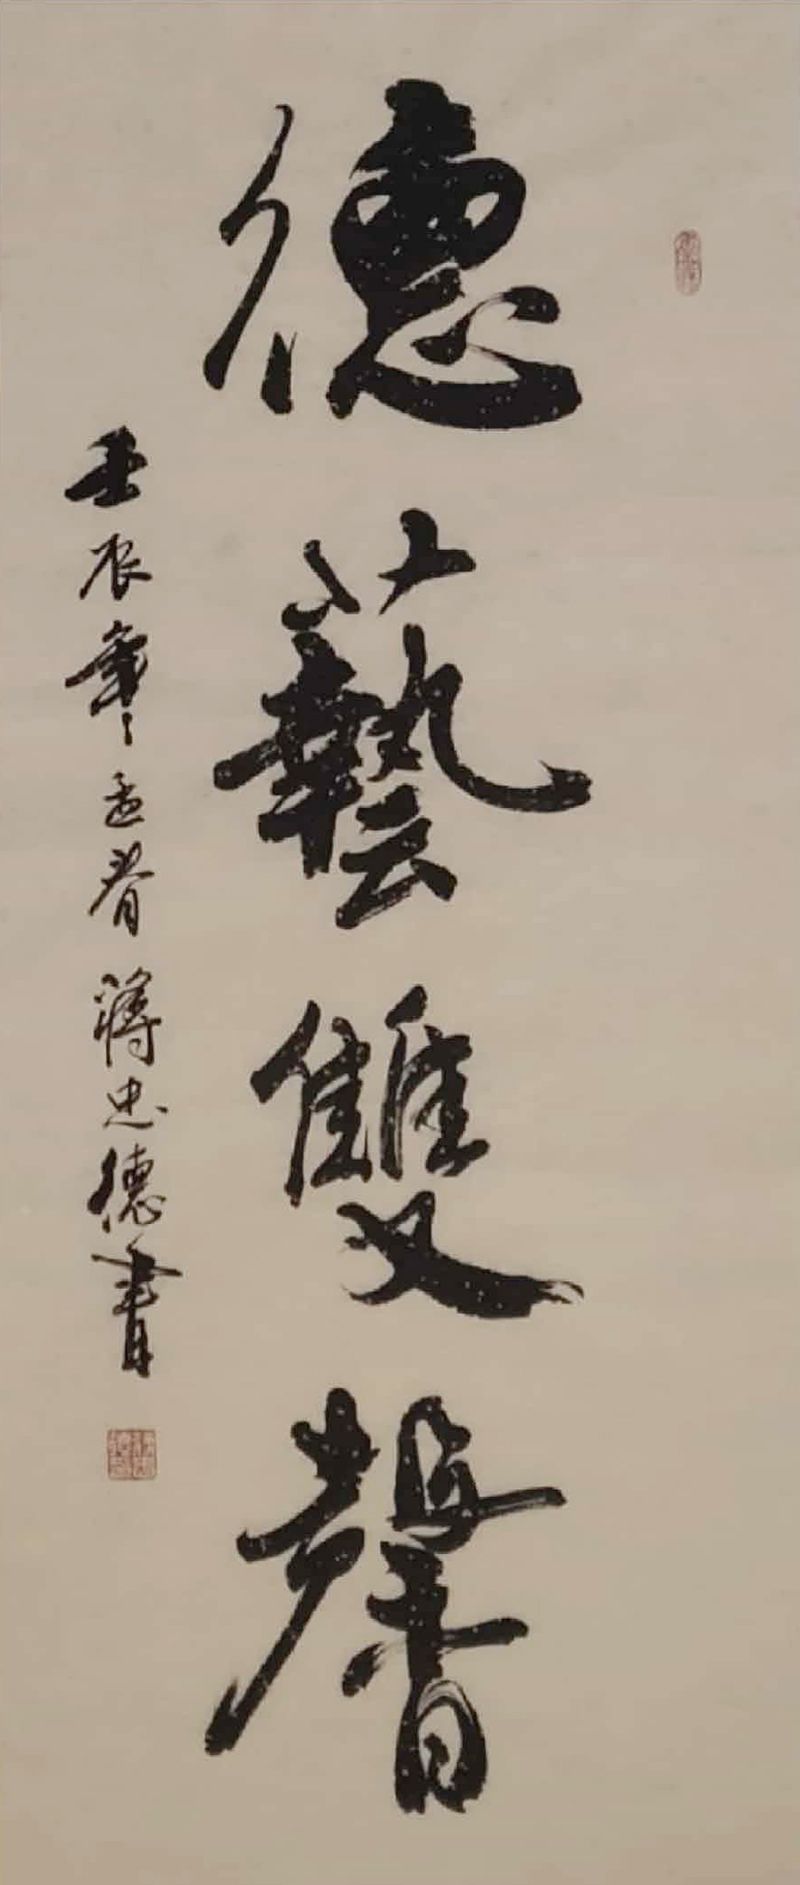 德藝雙馨
壬辰年孟春蔣忠德書